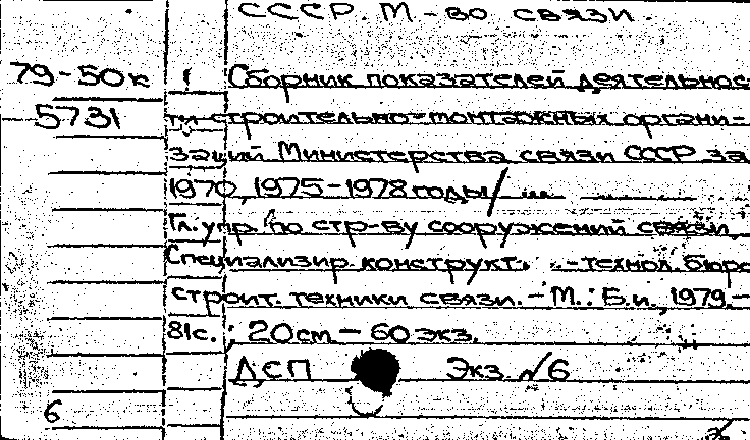 СССР. М-во связи.
79-50к Сборник показателей деятельнос
5731 ти строительно-монтажных органи-
заций Министерства связи СССР за
1970, 1975-1978 годы/
Гл. упр. по стр-ву сооружений связи,
Специализир. конструкт. -технол. бюро
строит. техники связи. - М.: Б.и., 1979.-
81с.; 20см - 60 экз.
ДСП Экз. №6
6